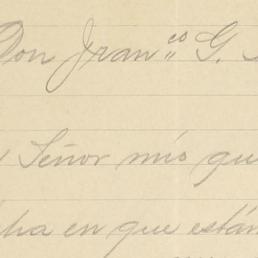 Don Fran.co G.
Señor mío qu
en que están